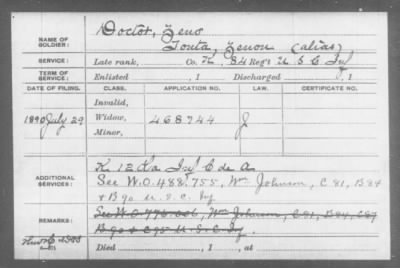 NAME OF SOLDIER: Doctor, Zeno
Tonta, Zenon (alias)
SERVICE: Late rank, Co. K, 84 Reg't U S C Inf
TERM OF SERVICE: Enlisted , 1 Discharged , 1
DATE OF FILING. CLASS. APPLICATION NO. LAW. CERTIFICATE NO.
Invalid,
1890 July 29 Widow, 468744 J
Minor,
ADDITIONAL SERVICES: K 1 Inf C de A
See W.O. 488.755, Wm Johnson, C 81, B 84
& B 90 U.S.C. Inf
REMARKS: See W.O. Wm Johnson, C 81, B 84, C 87
B 90 & C 95 U.S.C. Inf.
Died , 1 , at